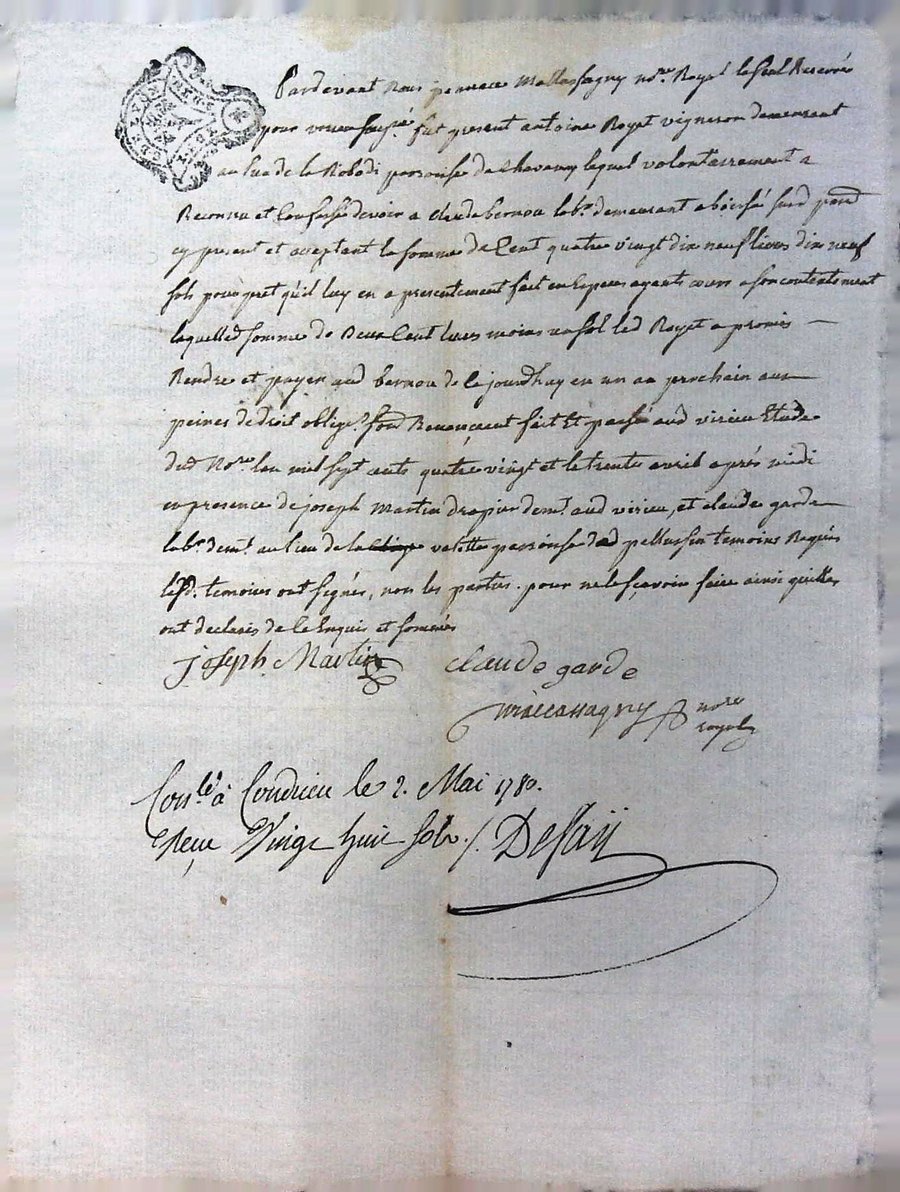 Pardevant Nous Mallassagny no.re Royal le seel Reservé
pour fut present antoine Royet vigneron demeurant
au lieu de la Ribodi parroisse de Chavanay lequel volontairement a
Reconnu et Confessé devoir a claude bernou lab.r demeurant a
cy present et acceptant la somme de Cent quatre vingt dix neuf livres dix neuf
sols pour pret qu'il luy en a presentement fait en Especes ayants cours a son contentement
laquelled somme de Deux Cent livres moins un sol led Royet a promis
Rendre et payer aud bernou de ce jourdhuy en un an prochain aux
peines de droit oblige.s soud Renoncent fait Et passé aud virieu Etude
dud No.re lan mil sept cents quatre vingt et le trente avril aprés midi
en presence de joseph Martin drapier dem.t aud virieu, et claude garde
lab.r dem.t au lieu de la valette parroisse dud pellussin temoins Requis
lesd. temoins ont signés, non les parties. pour ne le sçavoir faire ainsi quelles
ont declarés de ce Enquis et sommés
joseph Martin claude garde
mallassagny no.re
royal
Con.lé à Condrieu le 2. Mai 1780.
Reçu Vingt huit sols /. DeSaÿ